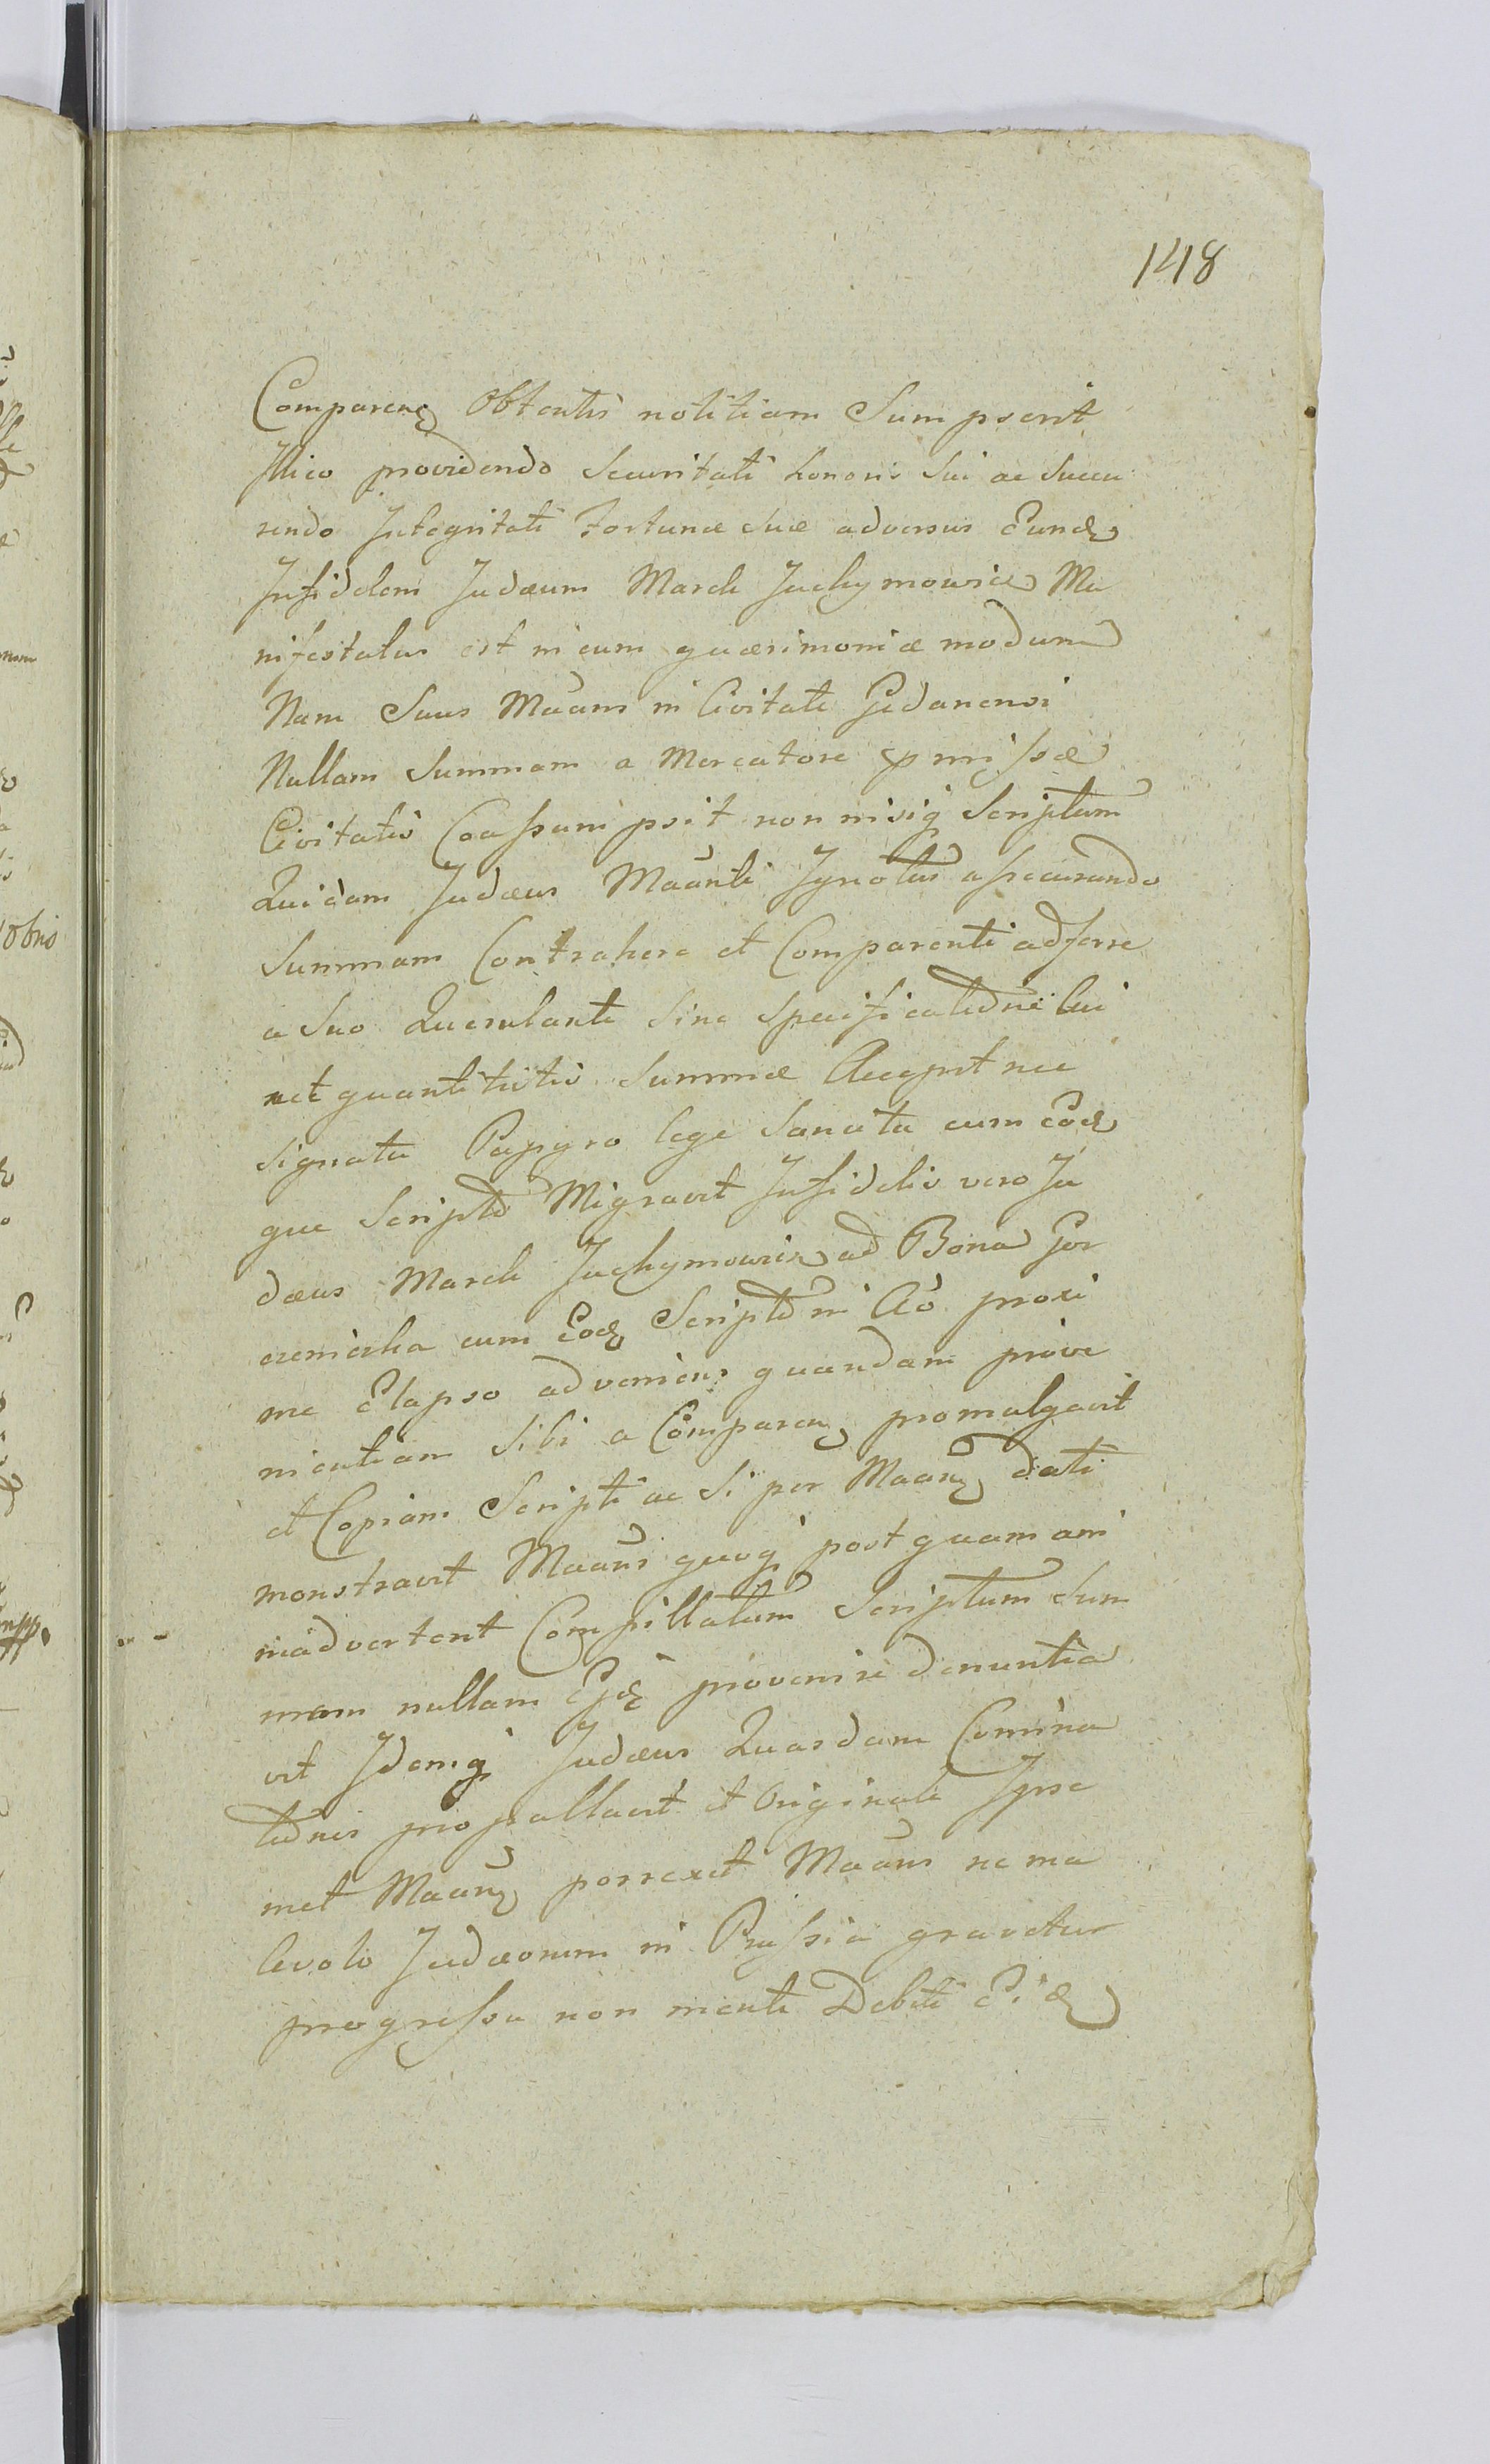 148
Comparens Obtentis notitiam Sumpserit
Illico providendo Securitati honoris Sui ac Succu
rendo Integritati Fortunæ Suæ adversus Eunde
Infidelem Judæum March Jachymowicz Ma
nifestatus est in eum quærimoniæ modum
Nam Suus Maãns in Civitate Gedanensi
Nullam Summam a Mercatore pmissæ
Civitatis Coassumpsit non nisiq Scriptum
Quidam Judæus Maãnti Ignotus assecurando
Summam Contrahere et Comparenti adferre
a Suo Querulante Sine Specificatõne Cui
net quantitatis Summæ Accepit nec
Signata Papyro lege Sancita cum Eod
que Scripto Migravit Infidelis vero Ju
dæus March Jachymowicz ad Bona Gor
czeniczka cum Eod Scripto in Aõ proxi
me Elapso adveniens quandam prove
nientiam Sibi a Comparen promulgavit
et Copiam Scripti ac Si per Maan dati
monstravit Maãns quoq postquam ani
madvertent Compillatum Scriptum Sum
mam nullam Ejd provenire denuntia
vit Idemq Judæus Quasdam Comina
tõnes propallavit et Originale Ipse
met Maãn porrexit Maãns ne ma
levolo Judæorum in Prussia gravetur
progressu non menti Debiti